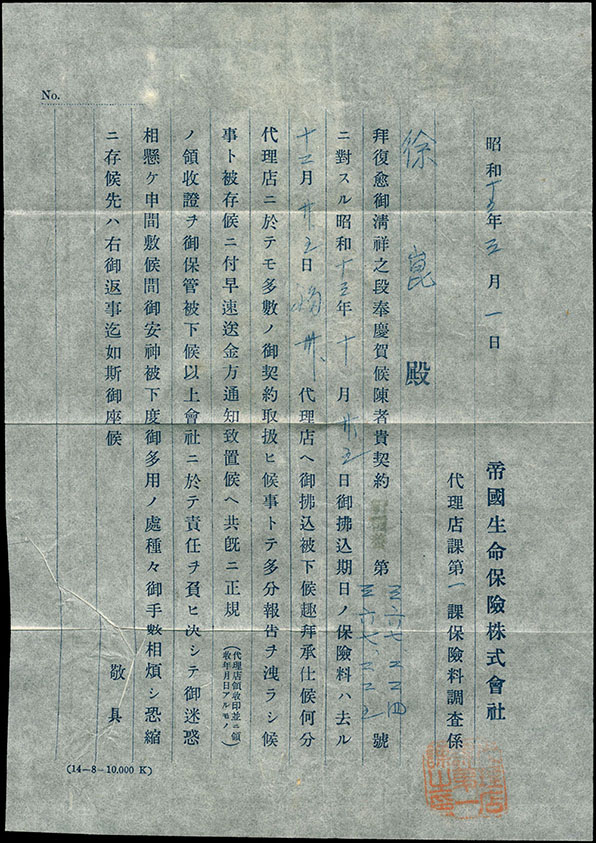 No.
昭和十五年三月一日
帝國生命保險株式會社
代理店課第一課保險料調査係
徐崑殿
拜復愈御淸祥之段奉慶賀候陳者貴契約 第三六七、二二四 三六七、三二五 號
ニ對スル昭和十三年十月廿五日御拂込期日ノ保險料ハ去ル
十二月廿五日 代理店ヘ御拂込被下候趣拜承仕候何分
代理店ニ於テモ多數ノ御契約取扱ヒ候事トテ多分報吿ヲ洩ラシ候
事ト被存候ニ付早速送金方通知致置候ヘ共旣ニ正規(代理店領收印並ニ領收年月日アルモノ)
ノ領收證ヲ御保管被下候以上會社ニ於テ責任ヲ負ヒ決シテ御迷惑
相懸ケ申間敷候間御安神被下度御多用ノ處種々御手數相煩シ恐縮
ニ存候先ハ右御返事迄如斯御座候
敬具
(14-8-10,000 K)